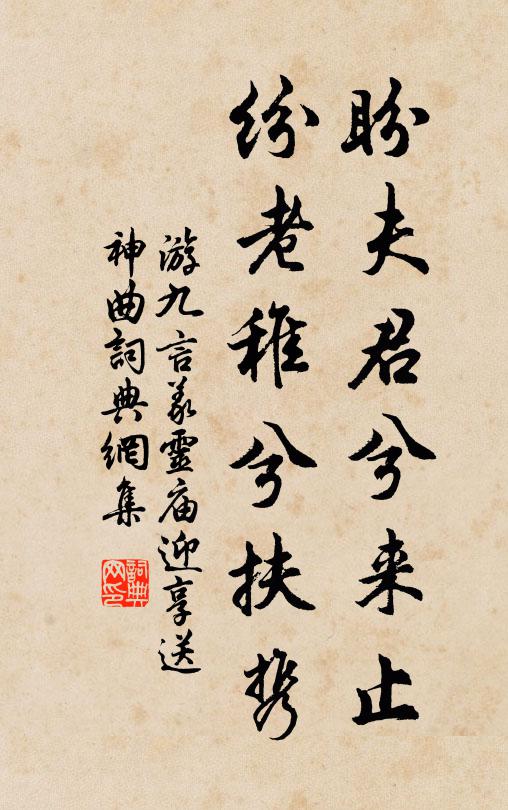 盼夫君兮来止
纷老稚兮扶携
游九言义灵庙迎享送
神曲词典网集
词典
网印